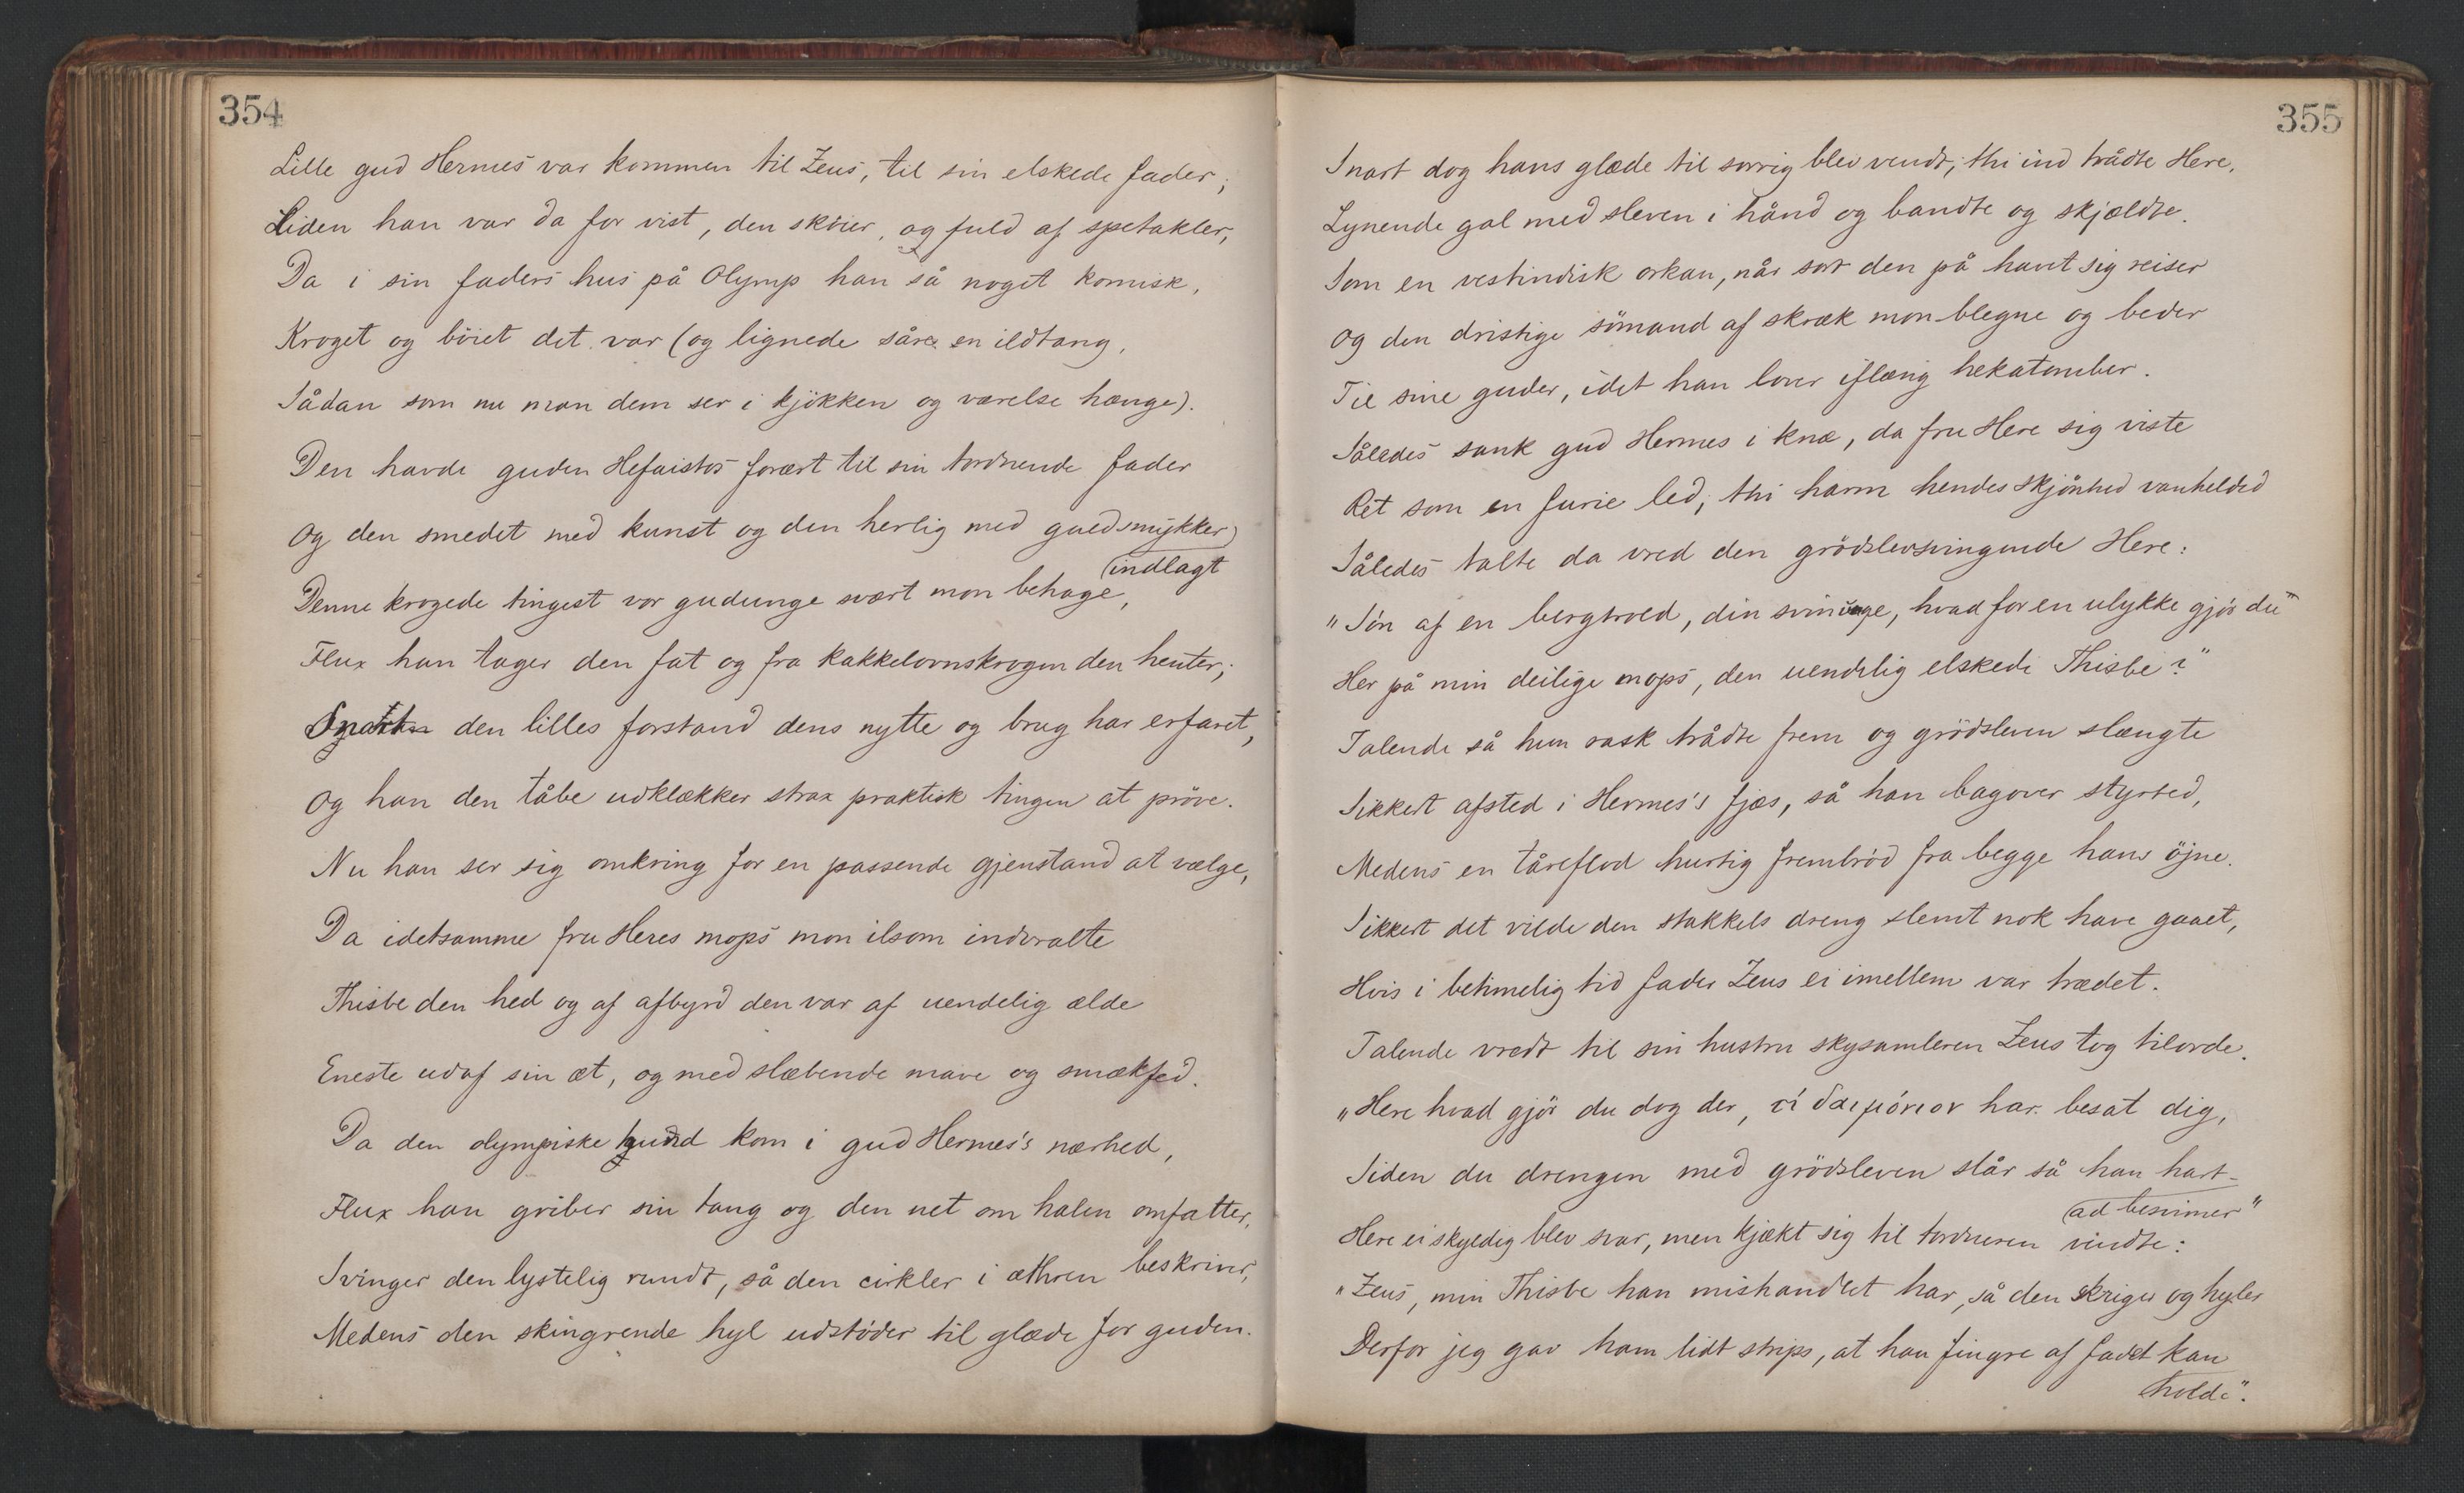 354
Lille gud Hermes var kommen til Zeus, til sin elskede fader;
Liden han var da for vist, den sköier, og fuld af spetakler,
Da i sin faders hus på Olymp han så noget komisk,
Kroget og böiet det var (og lignede såre en ildtang,
Sådan som nu man dem ser i kjökken og værelse hænge).
Den havde guden Hefaistos forært til sin tordnende fader
Og den smedet med kunst og den herlig med guldsmykker
indlagt
Denne krogede tingest vor gudunge svært mon behage,
Flux han tager den fat og fra kakkelovnskrogen den henter;
Snart den lilles forstand dens nytte og brug har erfaret,
Og han den tåbe udklækker strax praktisk tingen at pröve.
Nu han ser sig omkring for en passende gjenstand at vælge,
Da idetsamme fru Heres mops mon ilsom indvralte
Thisbe den hed og af afbyrd den var af uendelig ælde
Eneste udaf sin æt, og med slæbende mave og smækfed.
Da den olympiske hund kom i gud Hermes's nærhed,
Flux han griber sin tang og den net om halen omfatter,
Svinger den lystelig rundt, så den cirkler i æthren beskriver,
Medens den skingrende hyl udstöder til glæde for guden.
355
Snart dog hans glæde til sorrig blev vendt; thi ind trådte Here,
Lynende gal med sleven i hånd og bandte og skjældte.
Som en vestindisk orkan, når sort den på havet sig reiser
Og den dristige sömand af skræk mon blegne og beder
Til sine guder, idet han lover iflæng hekatomber.
Således sank gud Hermes i knæ, da fru Here sig viste
Ret som en furie led; thi harm hendes skjönhed vanhelded
Således talte da vred den grödslevsvingende Here:
"Sön af en bergtrold, din svinunge, hvad for en ulykke gjör du
Her på min deilige mops, den uendelig elskede Thisbe?"
Talende så hun rask trådte frem og grödsleven slængte
Sikkert afsted i Hermes's fjæs, så han bagover styrted,
Medens en tåreflod hurtig frembröd fra begge hans öjne.
Sikkert det vilde den stakkels dreng slemt nok have gaaet,
Hvis i betimelig tid fader Zeus ei imellem var trædet.
Talende vredt til sin hustru skysamleren Zeus tog tilorde.
"Here hvad gjör du dog der, τί δαιμόνιον har besat dig,
Siden du drengen med grödsleven slår så han hart-
ad besvimer"
Here ei skyldig blev svar, men kjækt sig til tordneren vendte:
"Zeus, min Thisbe han mishandlet har, så den skriger og hyler
Derfor jeg gav ham lidt strips, at han fingre af fadet kan
holde".